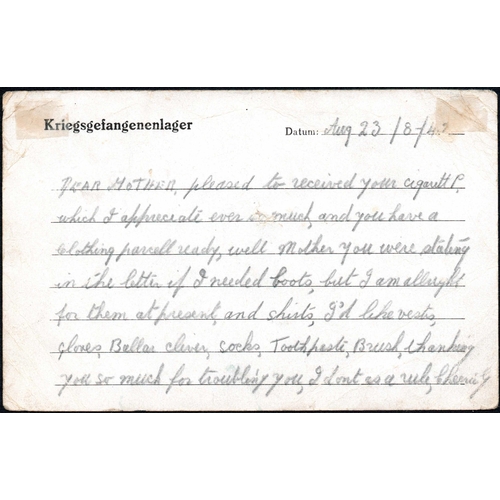 Kriegsgefangenenlager
Datum: Aug 23/8/42
DEAR MOTHER, pleased to received your cigarett P,
which I appreciate ever so much, and you have a
Clothing parcell ready, well Mother you were stating
in the letter if I needed boots, but I am allright
for them at present, and shirts, I'd like vests,
gloves, Ballar cliver, socks, Toothpaste, Brush, thanking
you so much for troubling you, I dont as a rule,